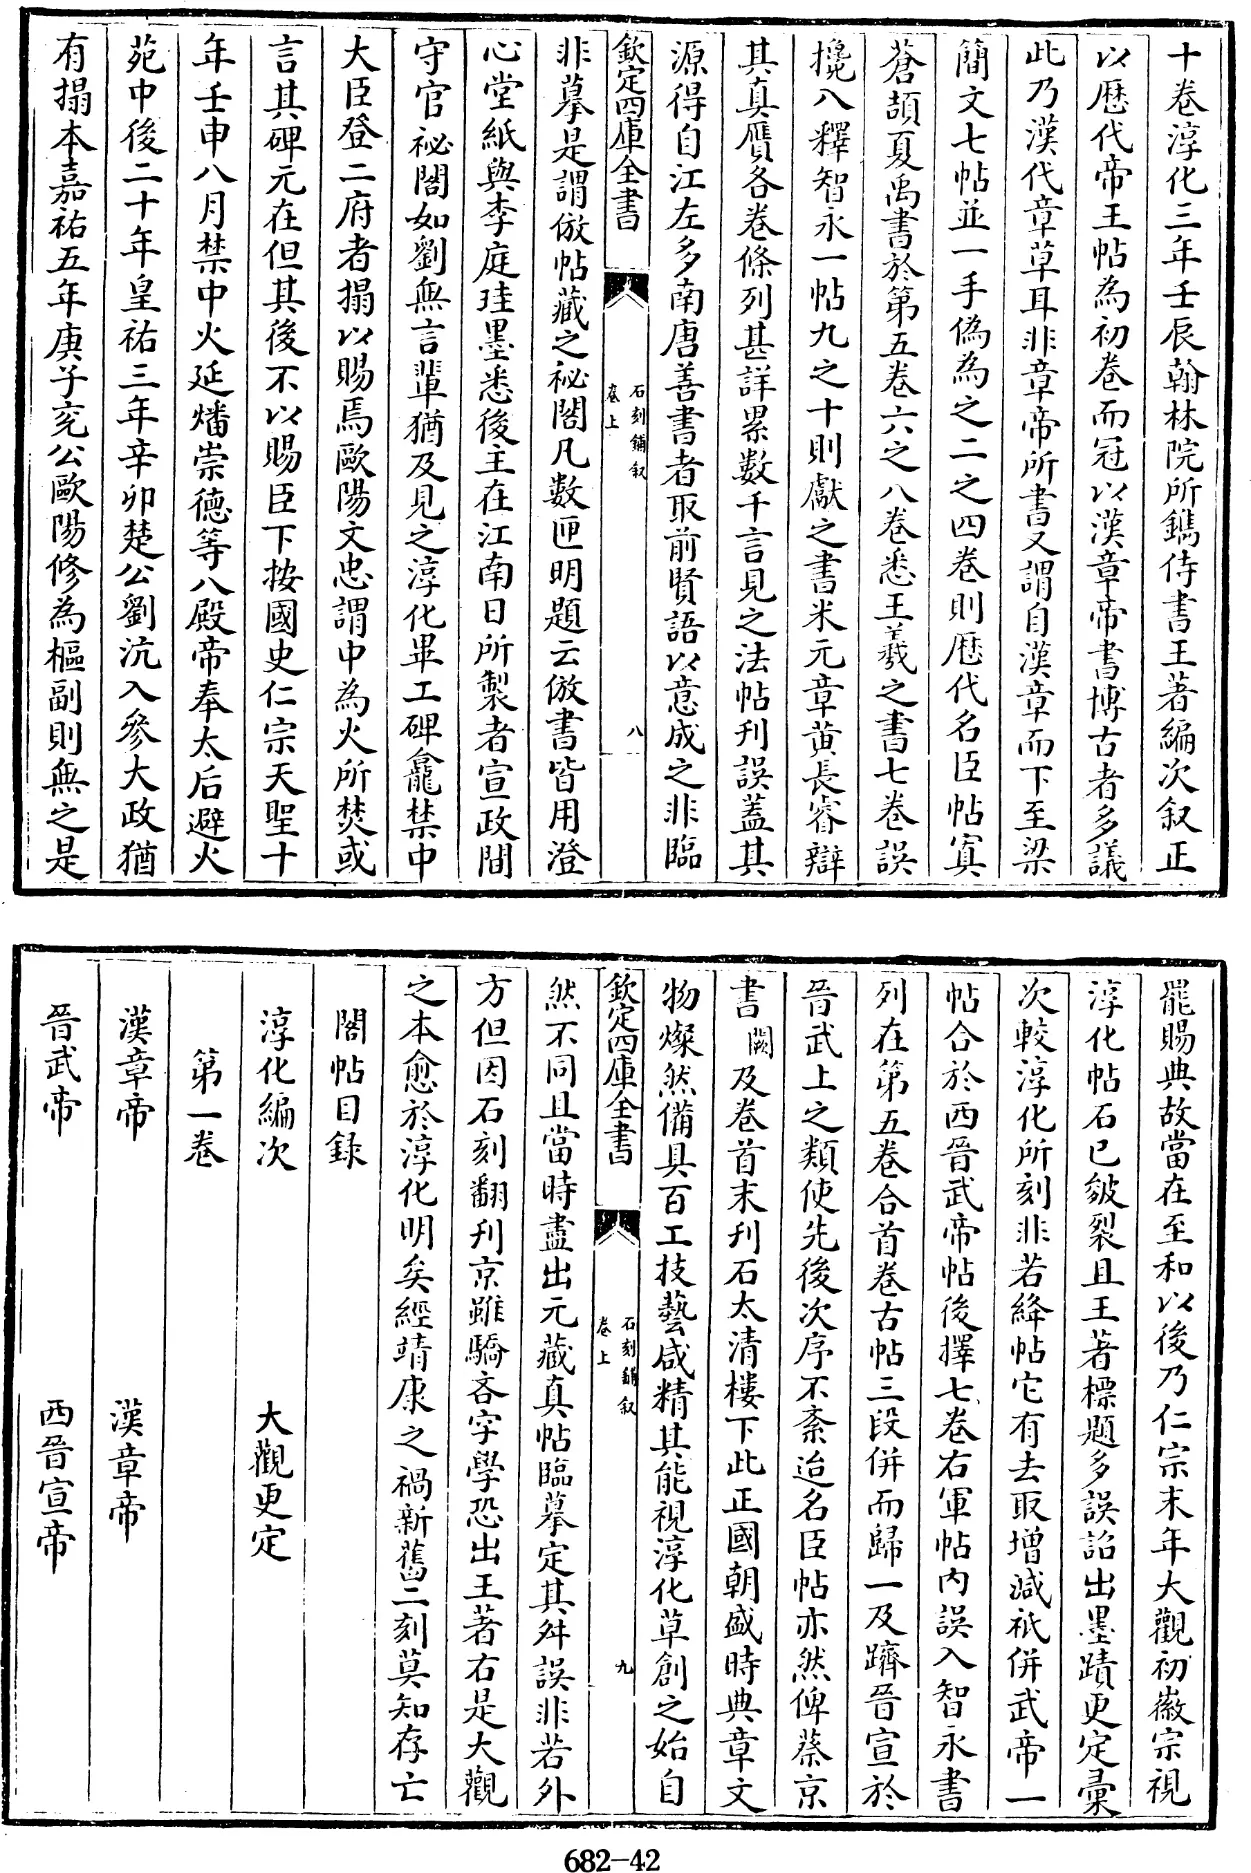 十卷淳化三年壬辰翰林院所鐫侍書王著編次叙正
以歴代帝王帖為初卷而冠以漢章帝書博古者多議
此乃漢代章草耳非章帝所書又謂自漢章而下至梁
簡文七帖並一手偽為之二之四卷則歴代名臣帖寘
蒼頡夏禹書於第五卷六之八卷悉王羲之書七卷誤
攙入釋智永一帖九之十則獻之書米元章黄長睿辯
其真贋各卷條列甚詳累數千言見之法帖刊誤蓋其
源得自江左多南唐善書者取前賢語以意成之非臨
欽定四庫全書
石刻鋪叙
卷上
八
非摹是謂倣帖藏之秘閣凡數匣明題云倣書皆用澄
心堂紙與李庭珪墨悉後主在江南日所製者宣政間
守官祕閣如劉無言輩猶及見之淳化畢工碑龕禁中
大臣登二府者搨以賜焉歐陽文忠謂中為火所焚或
言其碑元在但其後不以賜臣下按國史仁宗天聖十
年壬申八月禁中火延燔崇德等八殿帝奉太后避火
苑中後二十年皇祐三年辛卯楚公劉沆入參大政猶
有搨本嘉祐五年庚子兖公歐陽修為樞副則無之是
罷賜典故當在至和以後乃仁宗末年大觀初徽宗視
淳化帖石已皴裂且王著標題多誤詔出墨蹟更定彚
次較淳化所刻非若絳帖它有去取增減祇併武帝一
帖合於西晉武帝帖後擇七卷右軍帖内誤入智永書
列在第五卷合首卷古帖三段併而歸一及躋晉宣於
晉武上之類使先後次序不紊迨名臣帖亦然俾蔡京
書闕及卷首末刋石太清樓下此正國朝盛時典章文
物燦然備具百工技藝咸精其能視淳化草創之始自
欽定四庫全書
石刻鋪叙
卷上
九
然不同且當時盡出元藏真帖臨摹定其舛誤非若外
方但因石刻翻刋京雖驕吝字學恐出王著右是大觀
之本愈於淳化明矣經靖康之禍新舊二刻莫知存亡
閣帖目錄
淳化編次　大觀更定
第一卷
漢章帝　漢章帝
晉武帝　西晉宣帝
682-42